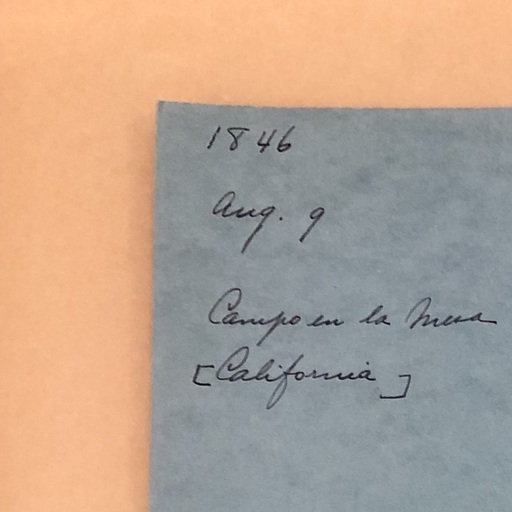 1846
Aug. 9
Campo en la Mesa
[California]